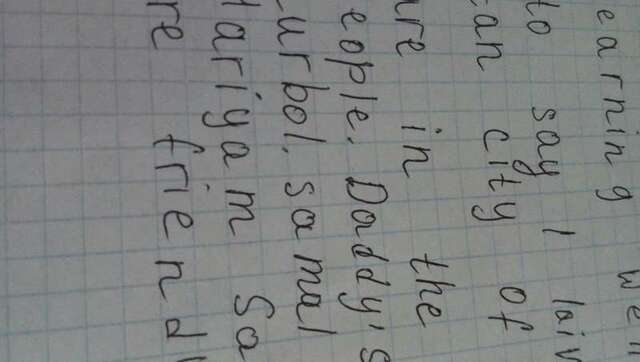 earning we
to say I laiv
an city of
are in the
eople. Daddy's
urbol. samal
ariyam Sa
re friend